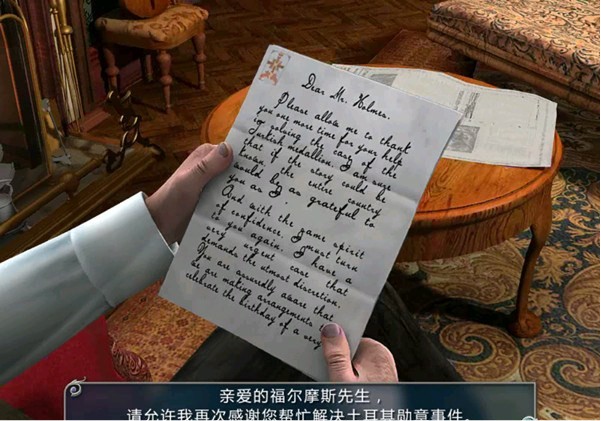 Dear Mr. Holmes.
Please allow me to thank
you one more time for your help
in solving the case of the
Turkish medallion. I am sure
that if the story could be
known, the entire country
would be as grateful to
you as I.
And with the same spirit
of confidence, I must turn
to you again. I have a
very urgent case that
demands the utmost discretion.
You are assuredly aware that
we are making arrangements to
celebrate the birthday of a very
亲爱的福尔摩斯先生，
请允许我再次感谢您帮忙解决土耳其勋章事件。